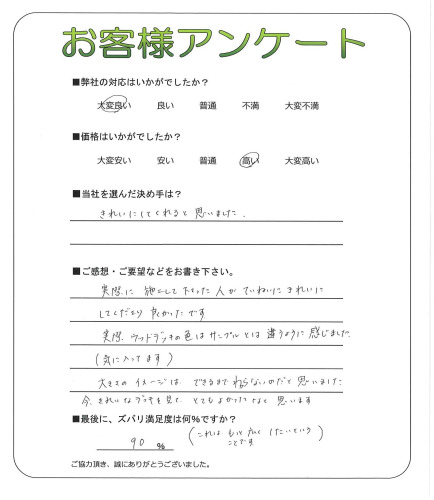 お客様アンケート
■弊社の対応はいかがでしたか？
大変良い 良い 普通 不満 大変不満
■価格はいかがでしたか？
大変安い 安い 普通 高い 大変高い
■当社を選んだ決め手は？
きれいにしてくれると思いました.
■ご感想・ご要望などをお書き下さい。
実際に施工して下さった人がていねいにきれいに
してくださり良かったです
実際、ウッドデッキの色はサンプルとは違うように感じました
(気に入ってます)
大きさのイメージは、できるまでわからないのだと思いました
今、きれいなデッキを見て、とてもよかったなと思います
■最後に、ズバリ満足度は何％ですか？
90 %
(これは もっと広くしたいという
ことです)
ご協力頂き、誠にありがとうございました。